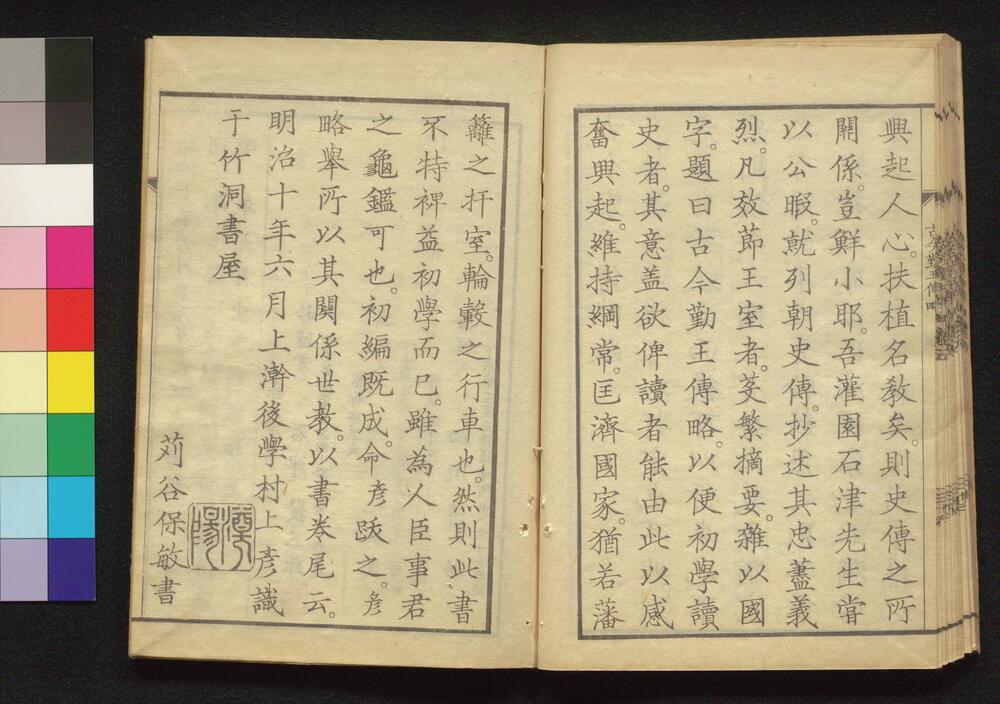 興起人心。扶植名教矣。則史傳之所
關係。豈鮮小耶。吾灌園石津先生甞
以公暇。就列朝史傳。抄述其忠藎義
烈。凡效節王室者。芟繁摘要。雜以國
字。題曰古今勤王傳略。以便初學讀
史者。其意盖欲俾讀者能由此以感
奮興起。維持綱常。匡濟國家。猶若藩
籬之扞室。輪轂之行車也。然則此書
不特裨益初學而已。雖為人臣事君
之龜鑑可也。初編既成。命彦跋之。彦
略舉所以其關係世教。以書卷尾云。
明治十年六月上澣後學村上彦識
于竹洞書屋
苅谷保敏書
古今勤王傳略